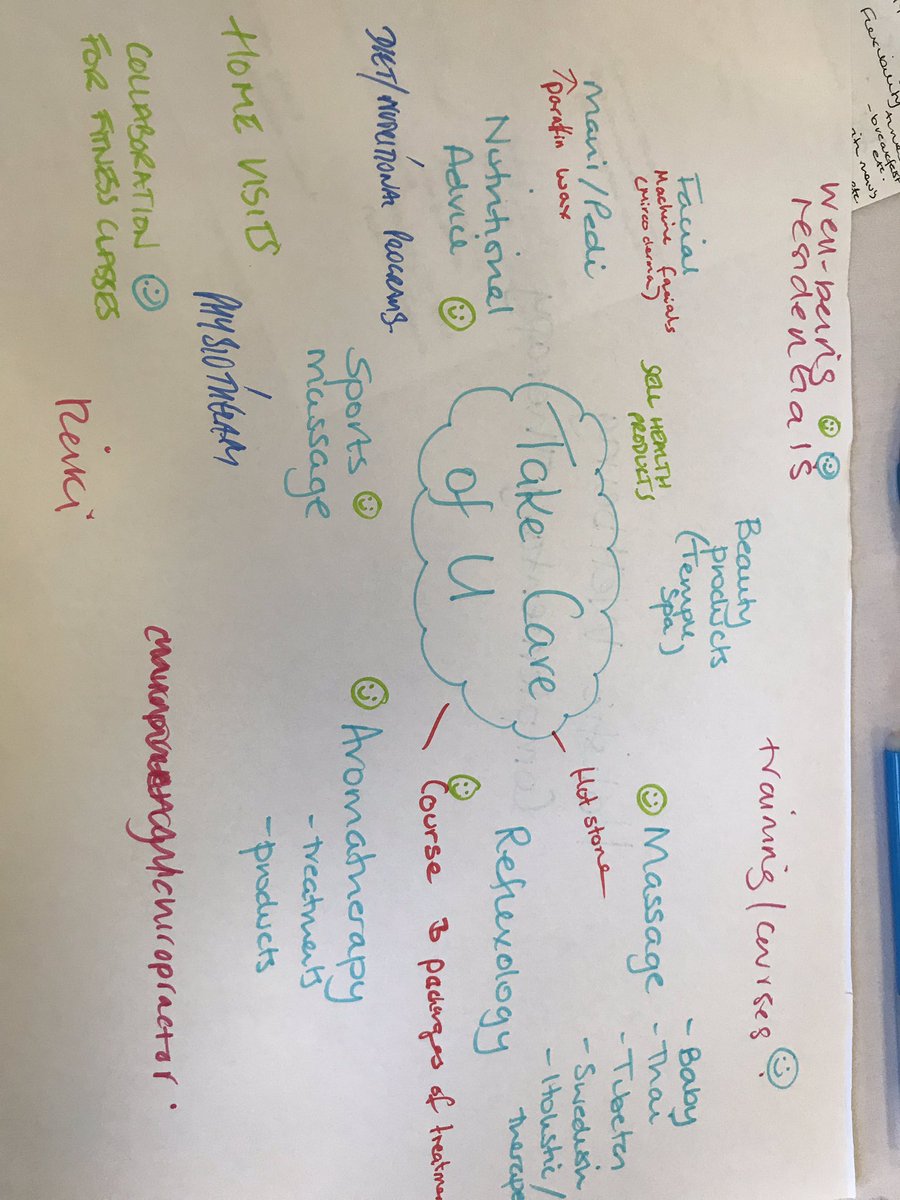 Flexibility
- breakfast
etc.
Well-being
residentials
training/courses
Beauty
products
(Temple
Spa)
Facial
Machine facials
(Mircoderma)
SELL HEALTH
PRODUCTS
Massage
- Baby
- Thai
- Tubeten
- Swedish
- Holistic/
therape
Hot stone
Mani/Pedi
↑ parafin wax
Take Care
of U
Nutritional
Advice
Reflexology
Course
packages of treatmen
DIET/NUTRITIONAL PROGRAMS.
Sports
massage
Aromatherapy
- treatments
- products
HOME VISITS
PHYSIOTHERAPY
COLLABORATION
FOR FITNESS CLASSES
Reiki
chiropractor